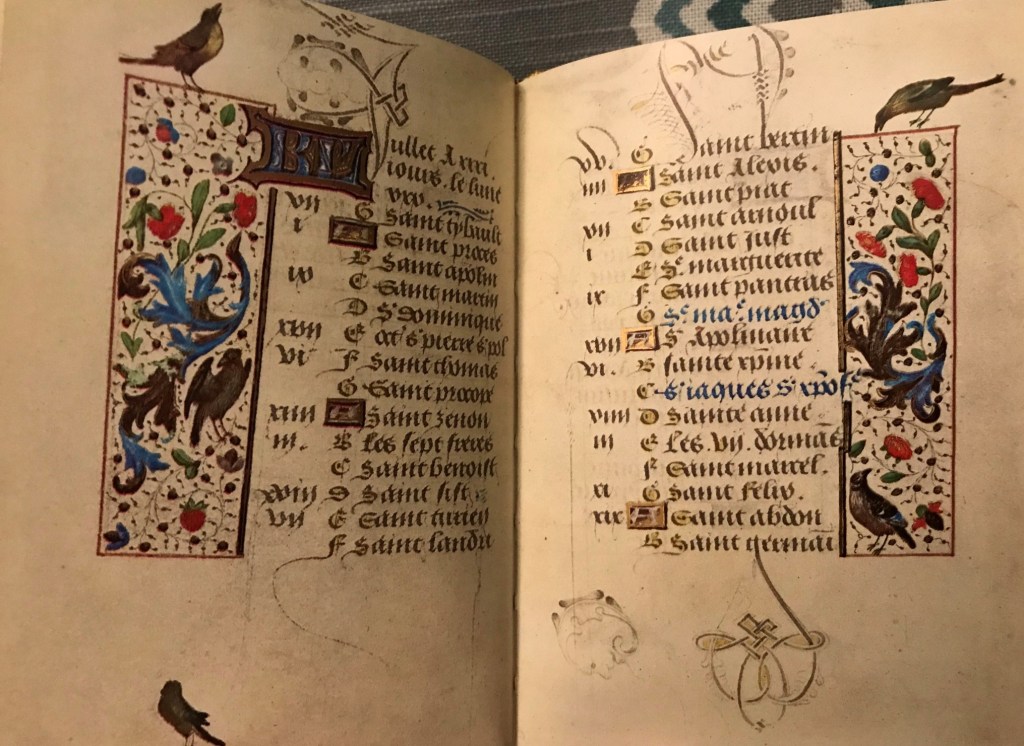 KL Jullet A xxxi
iours. le lune
xxx.
vii G Saint tybault
i A Saint proces
B Saint apolin
ix C Saint marin
D St dominique
xvii E oct s pierre s pol
vi F Saint thomas
G Saint procope
xiiii A Saint zenon
iii. B Les sept freres
C Saint benoist
xviii D Saint sist
vii E Saint turien
F Saint landri
xv. G Saint bertin
iiii A Saint Alexis.
B Saint piat
vii C Saint arnoul
i D Saint Just
E Se marguerite
ix F Saint pancras
G Se ma. magd
xvii A S Apolinaire
vi. B sainte xpine
C s iaques s xpofe
viiii D Sainte anne
iii E Les. vii. dormās
F Saint marcel.
xi G Saint felix.
xix A Saint abdon
B Saint germai